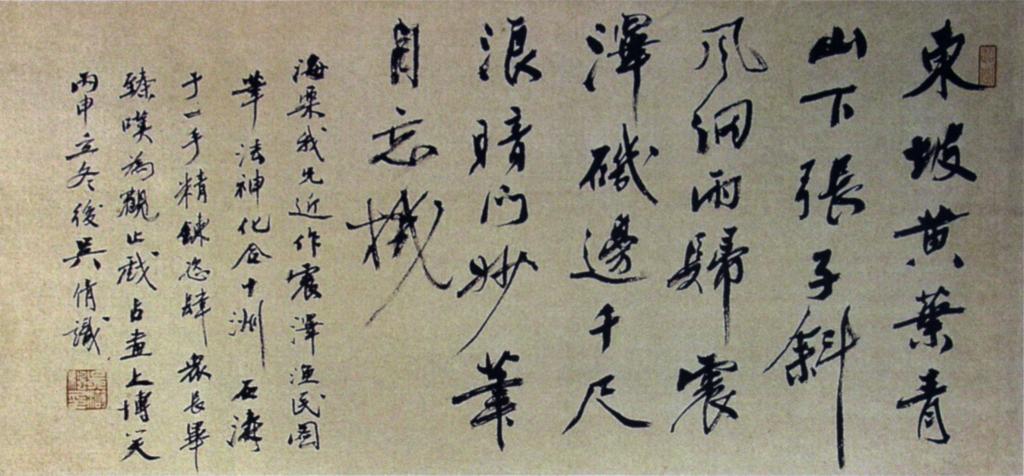 東坡黄葉青
山下張子斜
風細雨歸震
澤磯邊千尺
浪暗门妙筆
自忘機
海粟我兄近作震澤渔民圖
筆法神化合十洲石濤
于一手精鍊恣肆衆長畢
臻嘆為觀止戲占畫上博笑
丙申立冬後吴倩識